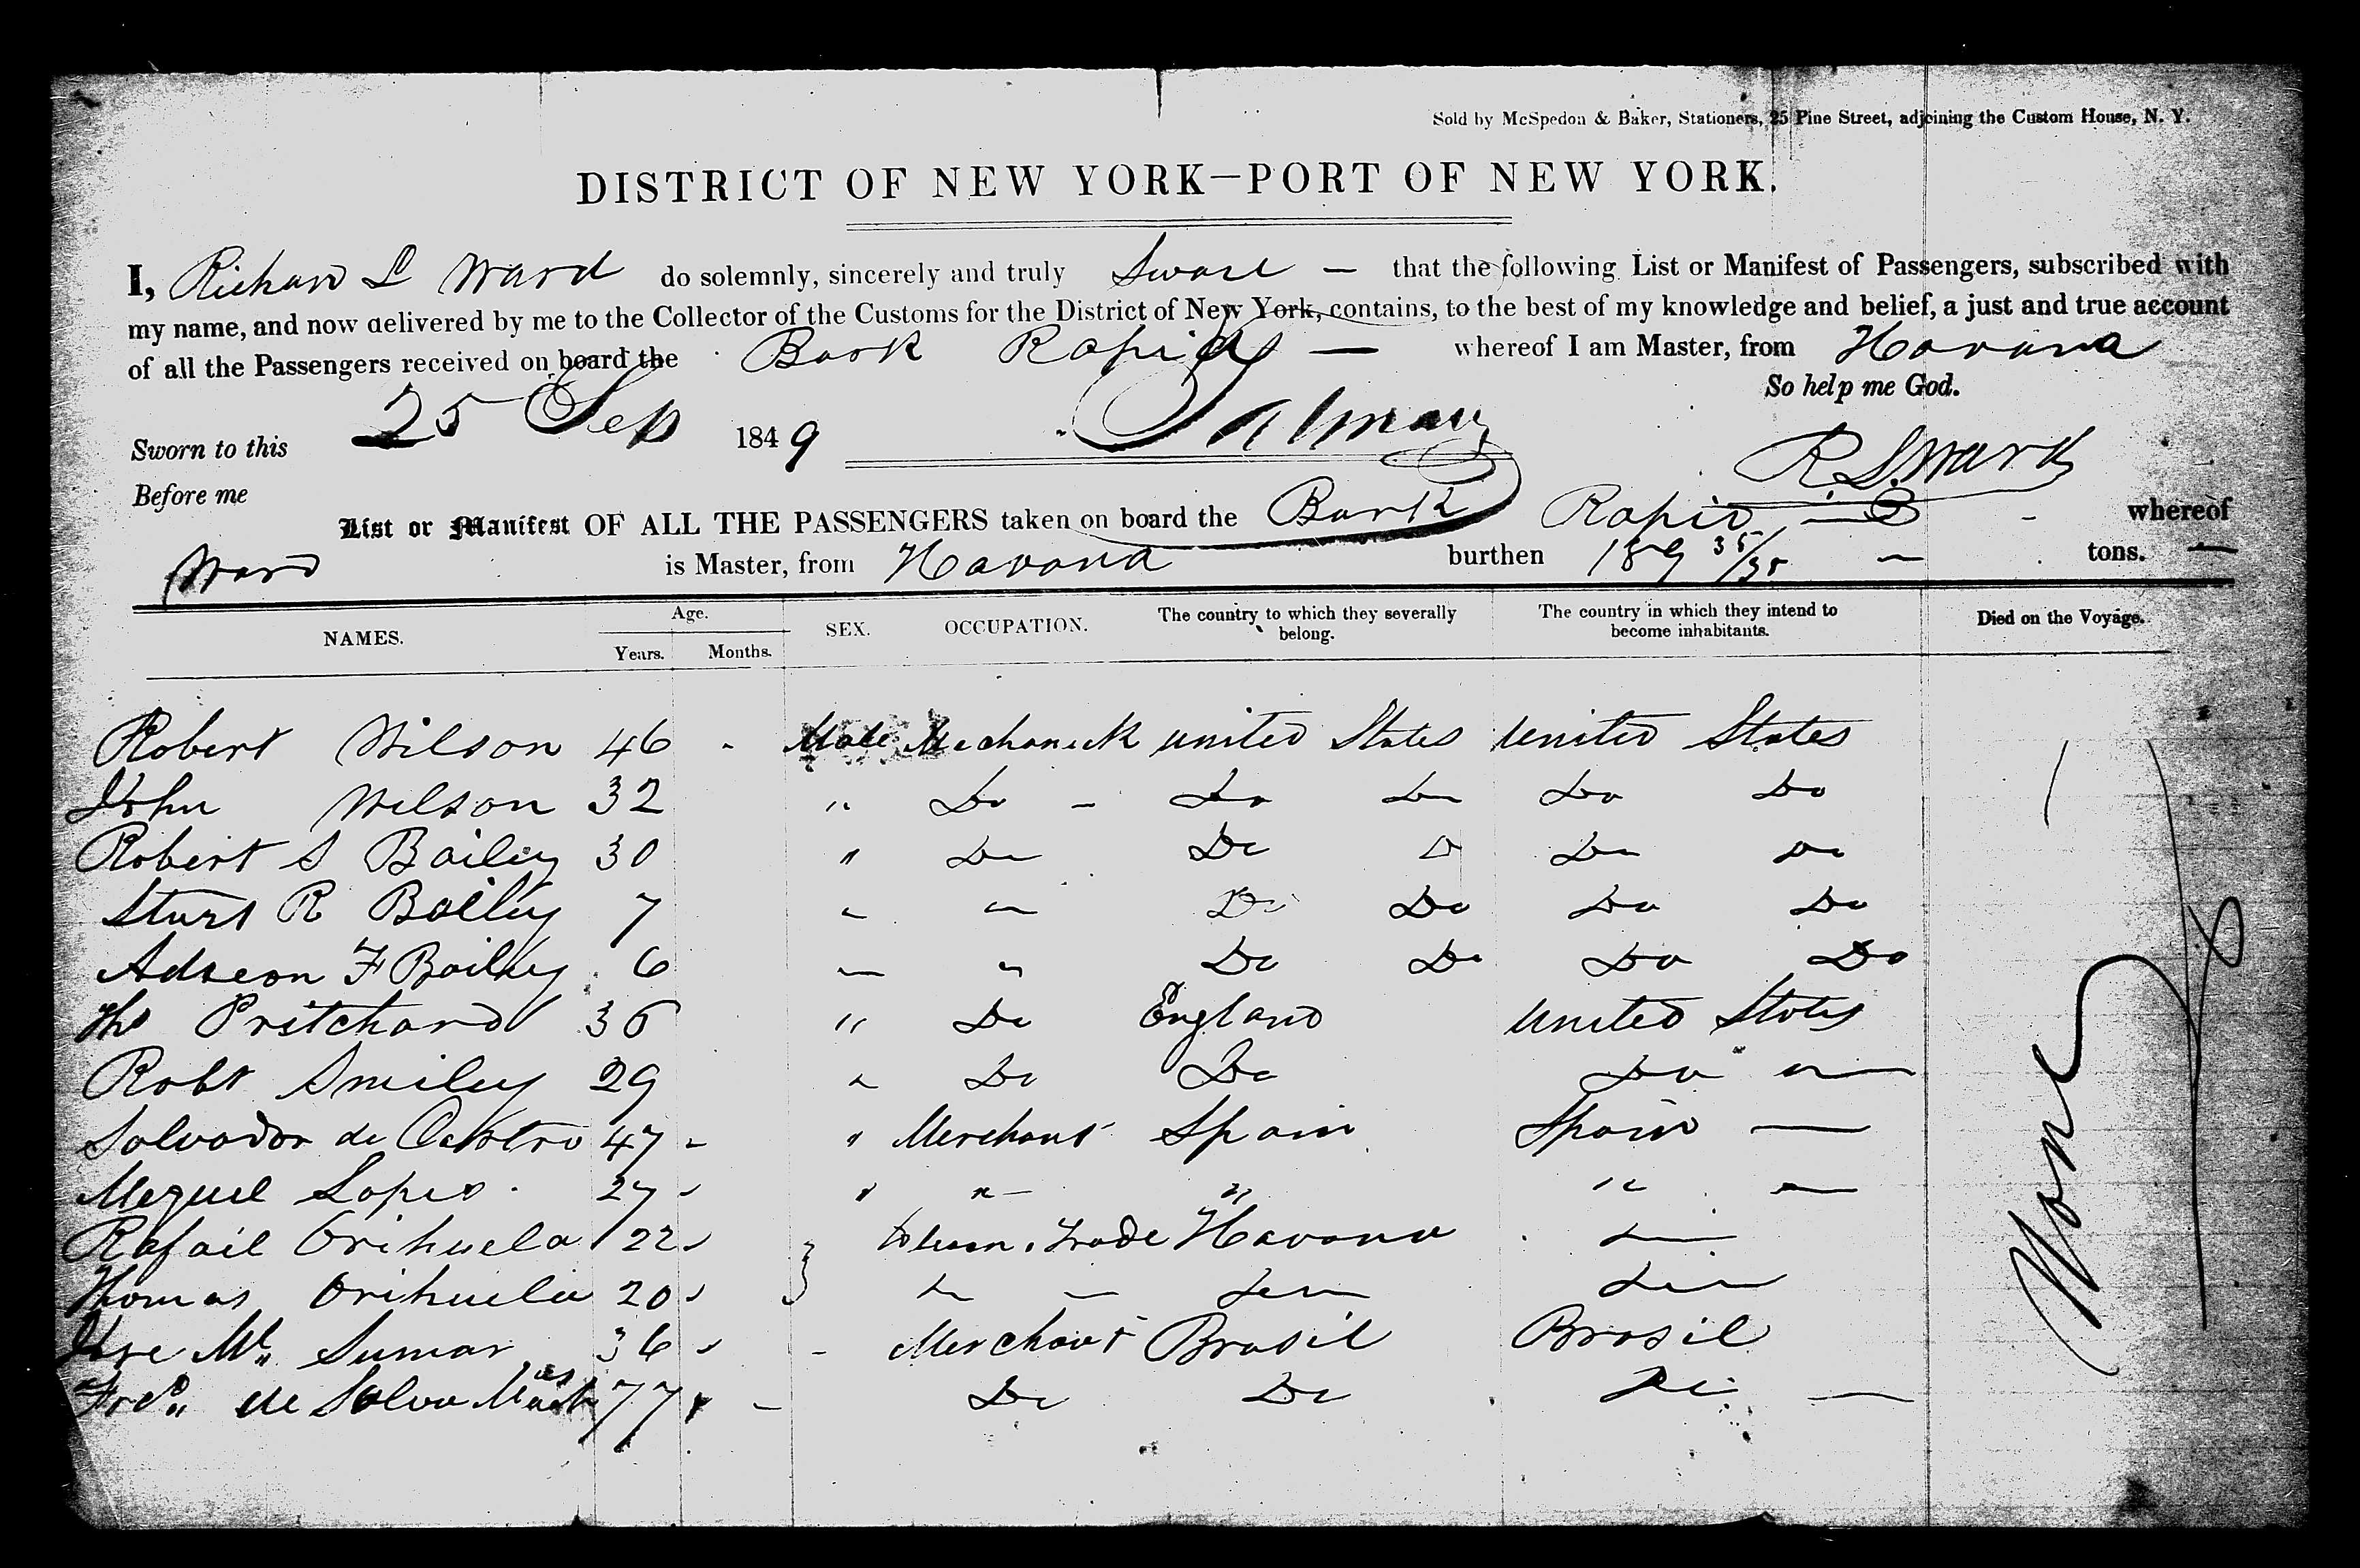 Sold by McSpedon & Baker, Stationers, 25 Pine Street, adjoining the Custom House, N. Y.
DISTRICT OF NEW YORK—PORT OF NEW YORK.
I, Richard L Ward do solemnly, sincerely and truly Swear — that the following List or Manifest of Passengers, subscribed with
my name, and now delivered by me to the Collector of the Customs for the District of New York, contains, to the best of my knowledge and belief, a just and true account
of all the Passengers received on board the Bark Rapid — whereof I am Master, from Havana
So help me God.
Sworn to this 25 Sep 1849
R L Ward
Before me
List or Manifest OF ALL THE PASSENGERS taken on board the Bark Rapid whereof
Ward is Master, from Havana burthen 189 tons. —
NAMES. Age. Years. Months. SEX. OCCUPATION. The country to which they severally belong. The country in which they intend to become inhabitants. Died on the Voyage.
Robert Wilson 46 - Male Mechanick united States united States
John Wilson 32 " Do - Do Do Do Do
Robert S Bailey 30 " Do Do D Do Do
R Bailey 7 " " Do Do Do Do
F Bailey 6 " " Do Do Do Do
Tho Pritchard 36 " Do England united States
Robt Smiley 29 " Do Do Do "
Salvador de Castro 47 - " Merchant Spain Spain —
Meguel Lopes 27 " " " " —
Rafail Orihuela 22 } Trade Havana Do
Thomas Orihuela 20 Do — Do Do
Jose Ma Sumar 36 - Merchant Brasil Brasil
de Salva 77 - Do Do Do —
None